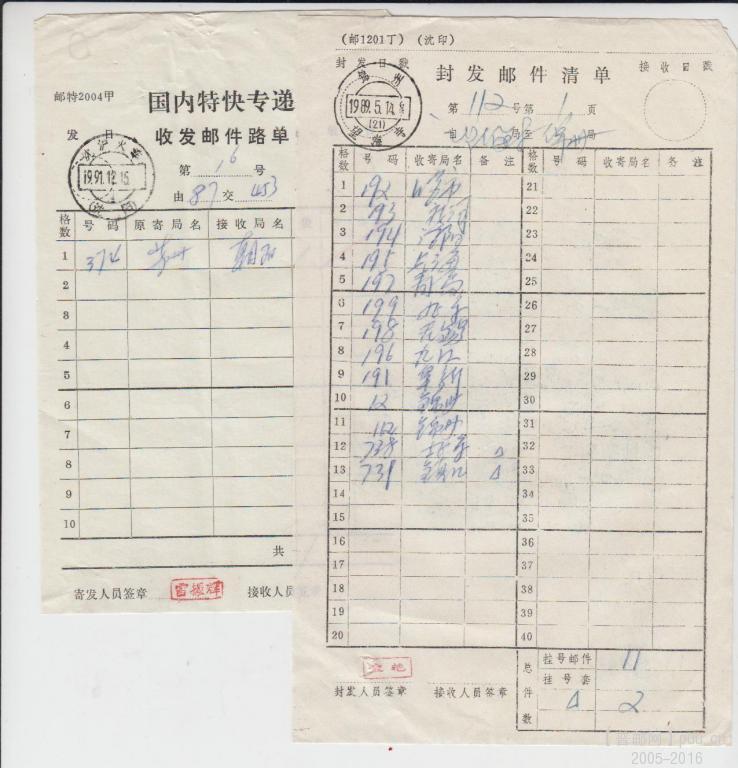 邮特2004甲
国内特快专递
收发邮件路单
发 日
1991.12.15
第 16 号
由 87 交 453
格数 号码 原寄局名 接收局名
1 374
2
3
4
5
6
7
8
9
10
共
寄发人员签章 接收人员
(邮1201丁)(沈印)
封发日戳
封发邮件清单
接收日戳
锦州
1989.5.14
(21)
第 112 号第 1 页
由 局至 锦州 局
格数 号码 收寄局名 备注 格数 号码 收寄局名 务注
1 192 21
2 193 22
3 194 沈阳 23
4 195 上海 24
5 197 25
6 199 北京 26
7 198 无锡 27
8 196 九江 28
9 191 29
10 12 锦州 30
11 112 锦州 31
12 738 北京 △ 32
13 731 △ 33
14 34
15 35
16 36
17 37
18 38
19 39
20 40
总件数
挂号邮件 11
挂号套
△ 2
封发人员签章 接收人员签章
2005-2016